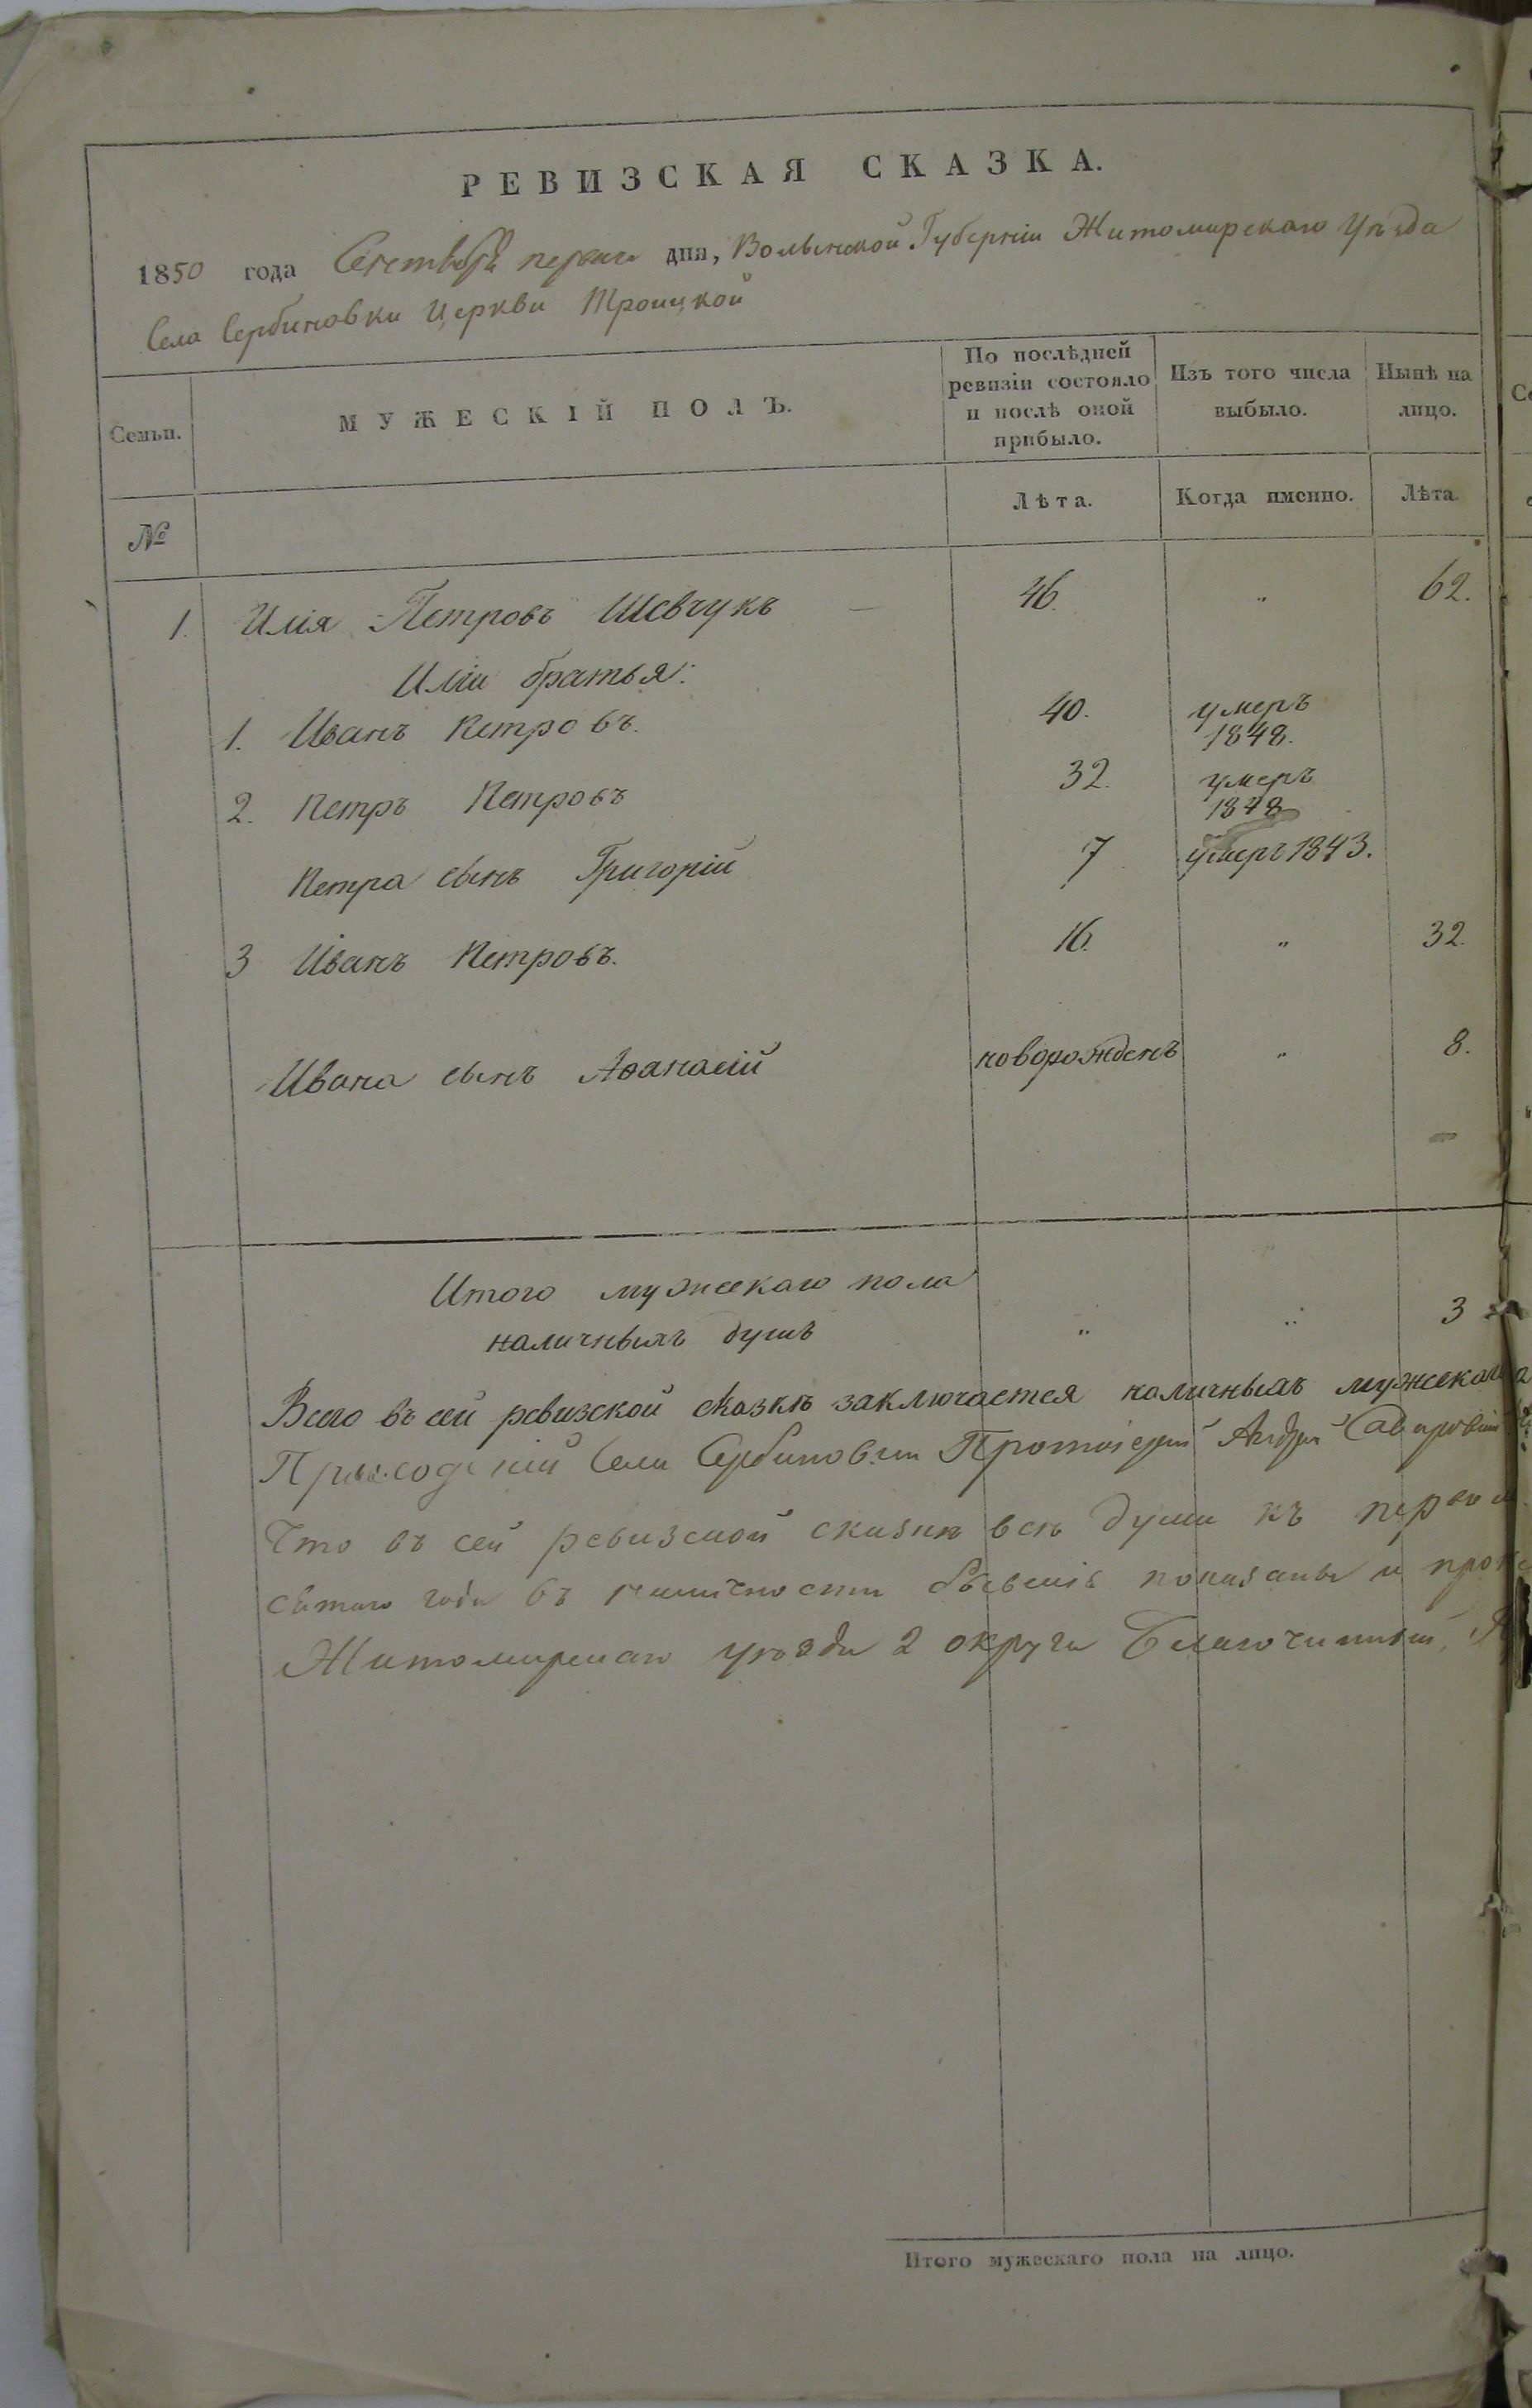 РЕВИЗСКАЯ СКАЗКА.
1850 года Сентября перваго дня, Волынской Губерніи Житомирскаго Уѣзда
Села Сербиновки Церкви Троицкой
Семьи.
МУЖЕСКІЙ ПОЛЪ.
По послѣдней
ревизіи состояло
и послѣ оной
прибыло.
Изъ того числа
выбыло.
Нынѣ на
лицо.
№
Лѣта.
Когда именно.
Лѣта
1. Илія Петровъ Шевчукъ — 46. „ 62.
Иліи братья:
1. Иванъ Петровъ. 40. умеръ
1848.
2. Петръ Петровъ 32. умеръ
1848
Петра сынъ Григорій 7 умеръ 1843.
3 Иванъ Петровъ. 16. „ 32.
Ивана сынъ Аѳанасій новорожденъ „ 8.
Итого мужескаго пола
наличныхъ душъ „ „ 3
Всего въ сей ревизской сказкѣ заключается наличныхъ мужескаго
Приходскій Села Сербиновки Протоіерей Андрей
Что въ сей ревизской сказкѣ всѣ души къ
года въ наличности бывшія показаны и
Житомирскаго уѣзда 2 округа Благочинный,
Итого мужескаго пола на лицо.